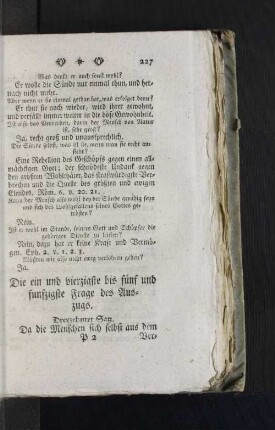 227
Was denkt er noch sonst wohl?
Er wolle die Sünde nur einmal thun, und her-
nach nicht mehr.
Aber wenn er sie einmal gethan hat, was erfolget denn?
Er thut sie noch wieder, wird ihrer gewohnt,
und verfällt immer weiter in die böse Gewohnheit.
Ist also das Verderben, darin der Mensch von Natur
ist, sehr groß?
Ja, recht groß und unaussprechlich.
Die Sünde selbst, was ist sie, wenn man sie recht an-
siehet?
Eine Rebellion des Geschöpfs gegen einen all-
mächtigen Gott; der schnödeste Undank gegen
den größten Wohlthäter, das strafwürdigste Ver-
brechen und die Quelle des größten und ewigen
Elendes. Röm. 6. v. 20. 21.
Kann der Mensch also wohl bey der Sünde geruhig seyn
und sich des Wohlgefallens seines Gottes ge-
trösten?
Nein.
Ist er wohl im Stande, seinem Gott und Schöpfer die
gehörigen Dienste zu leisten?
Nein, dazu hat er keine Kraft und Vermö-
gen. Eph. 2. v. 1. 2. 3.
Müßten wir also nicht ewig verlohren gehen?
Ja.
Die ein und vierzigste bis fünf und
funfzigste Frage des Aus-
zugs.
Dreyzehnter Satz.
Da die Menschen sich selbst aus dem
P 2 Ver-